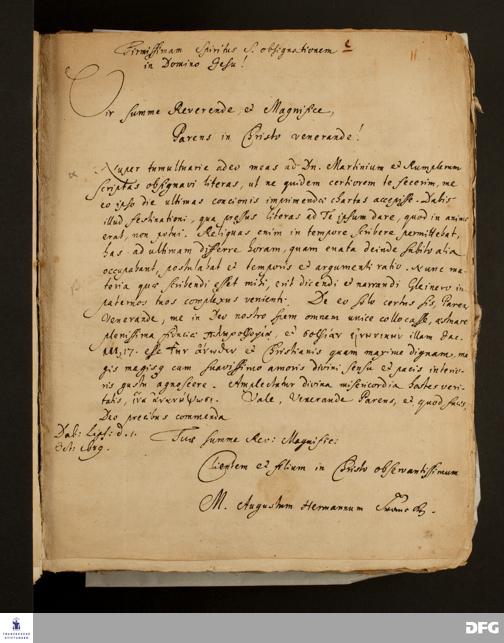 Firmissimam Spiritus S. obsignationem
in Domino Jesu!
11
Vir summe Reverende, et Magnifice,
Parens in Christo venerande!
Nuper tumultuarie adeo meas ad Dn. Martinium et Rumplerum
scriptas obsignavi literas, ut ne quidem certiorem te fecerim, me
eo ipso die ultimas concionis imprimendæ chartas accepisse. Datis
illud, festinationi, qua pressus literas ad Te ipsum dare, quod in animo
erat, non potui. Reliquas enim in tempore scribere permittebat,
has ad ultimam differre horam, quam enata deinde subito alia
occupabant, postulabat et temporis et argumenti ratio. Nunc ma-
teria quæ scribendi esset mihi, erit dicendi et narrandi Gleinero in
paternos tuos complexus venienti. De eo solo certus sis, Parens
Venerande, me in Deo nostro spem omnem unice collocasse, astnare
plenissima πληροφορία, et σοφίαν εἰρηνικὴν illam Jac.
III, 17. esse τὴν ἄνωθεν et Christianis quam maxime dignam, ma-
gis magisq cum suavissimo amoris divini sensu et pacis interio-
ris gustu agnoscere. Amplectatur divina misericordia hostes veri-
tatis, ἵνα ἀνανήψωσι. Vale, Venerande Parens, et quod facis,
Deo precibus commenda
Dab: Lips: d. 1.
Oct: 1689.
Tuæ summe Rev: Magnific:
Clientem et filium in Christo observantissimum
M. Augustum Hermannum
FRANCKESCHE
STIFTUNGEN
DFG